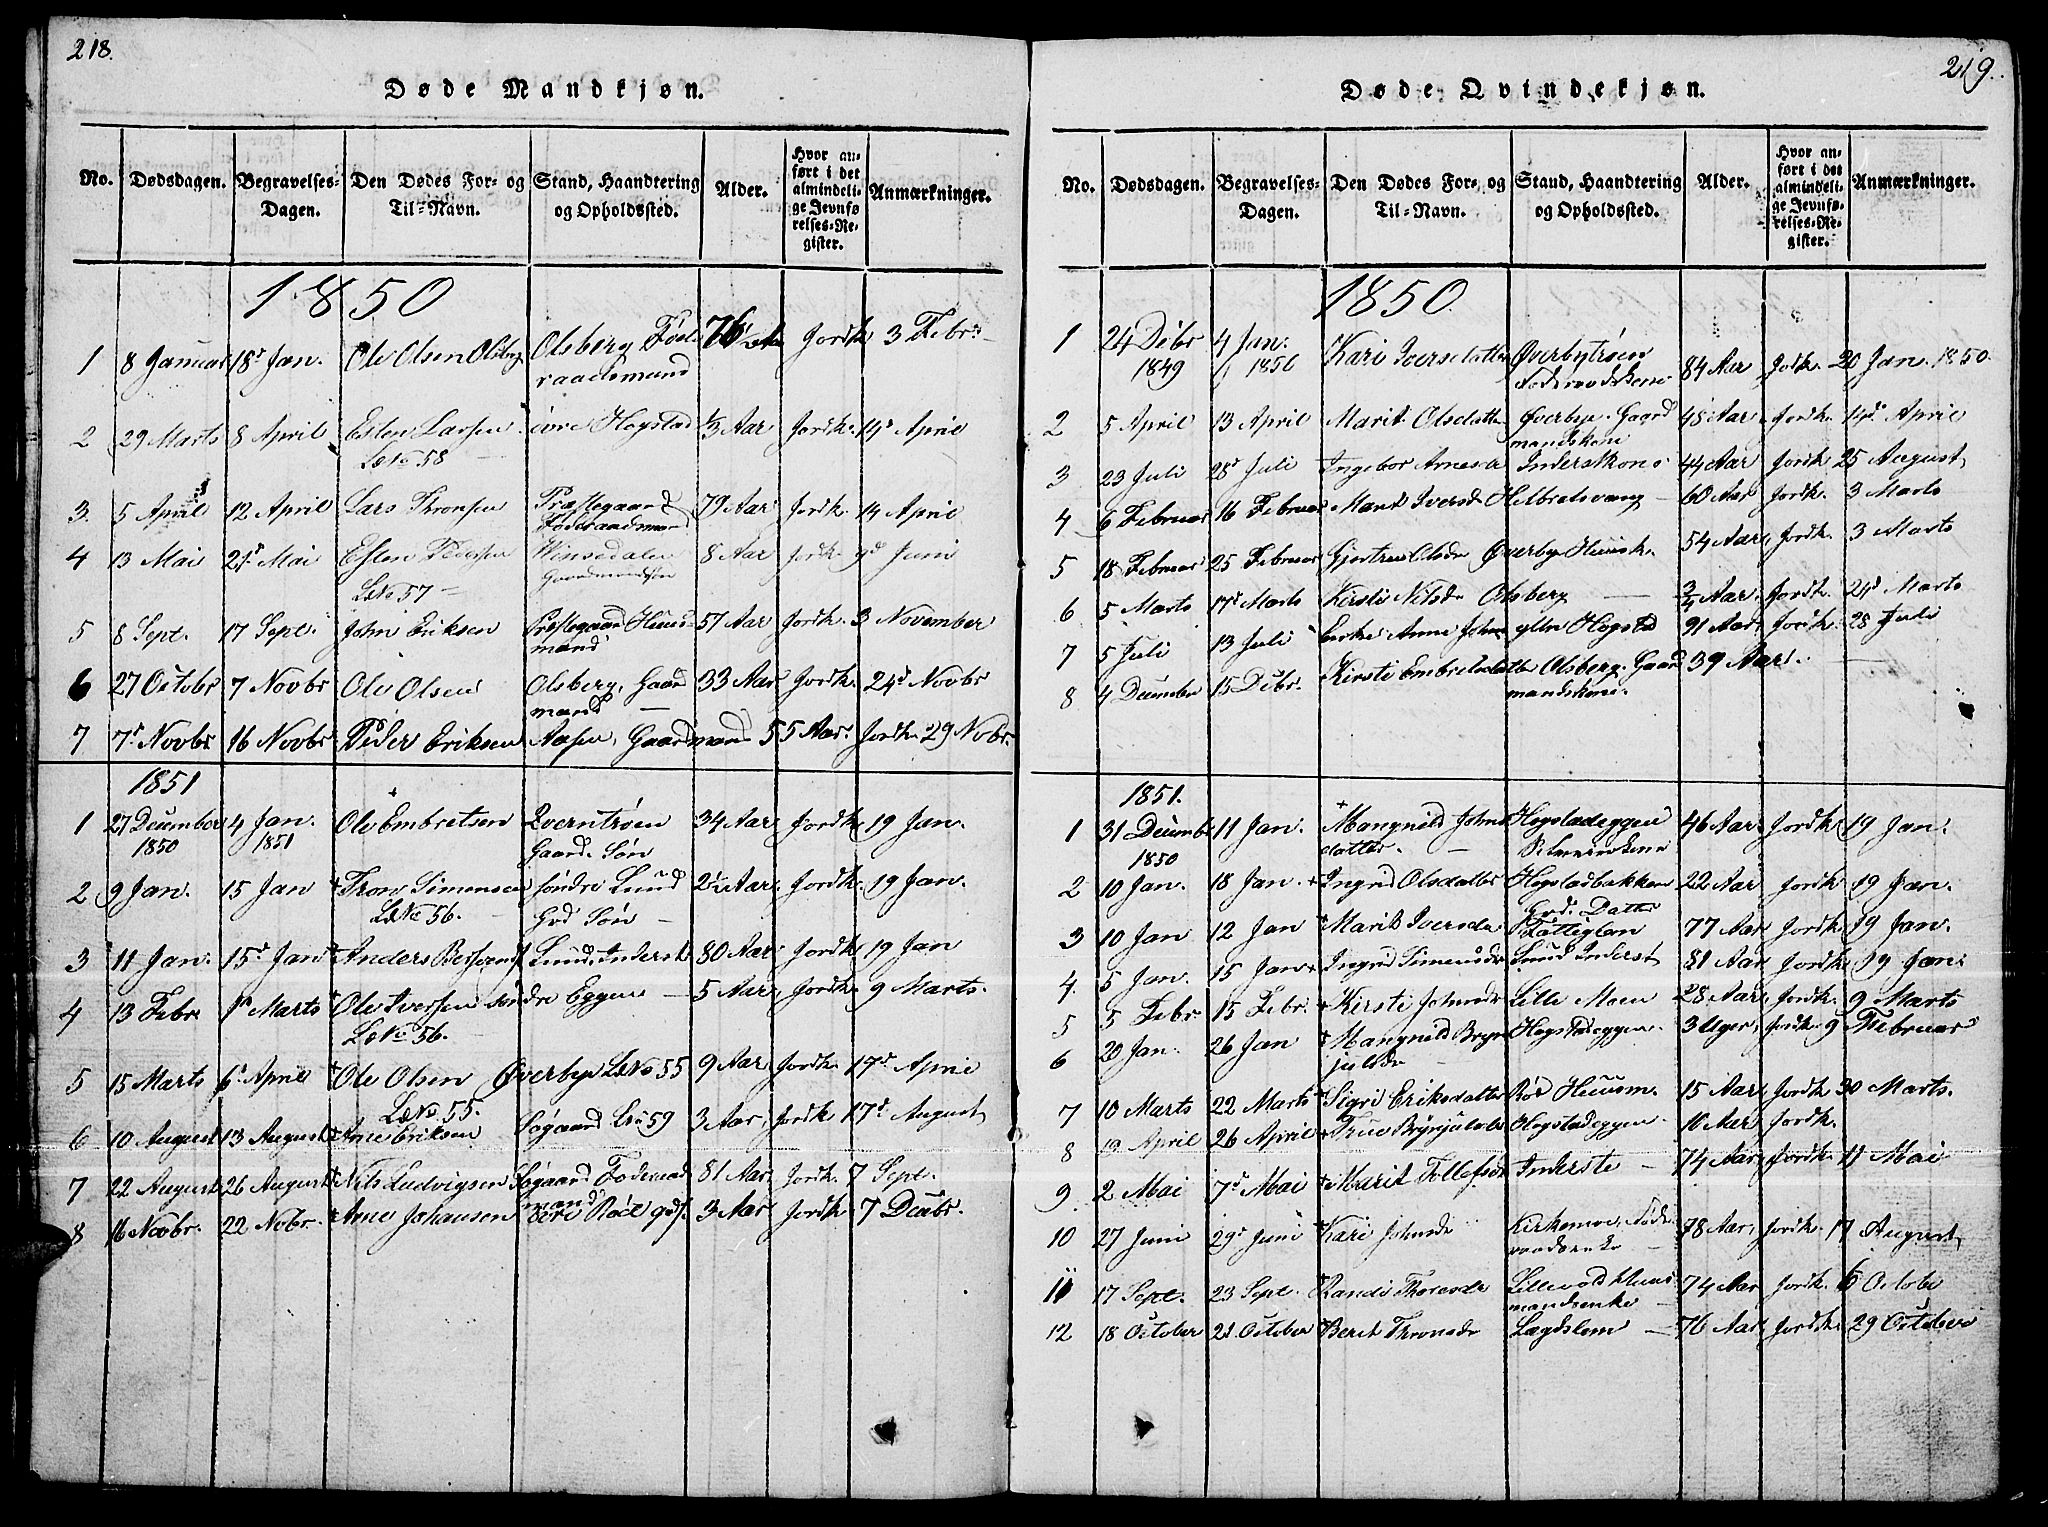 218.
Døde Mandkjøn.
No. Dødsdagen. Begravelses-Dagen. Den Dødes For- og Til-Navn. Stand, Haandtering og Opholdssted. Alder. Hvor anført i det almindelige Jevnførelses-Register. Anmærkninger.
1850
1 8 Januar 18d Jan. Ole Olsen Olsberg Olsberg Føderaadsmand 76 Jordk 3 Febr.
2 29 Marts 8 April Esten Larsen øvre Hogstad 1/3 Aar Jordk. 14d April
LNo 58
3. 5 April 12 April Lars Thronsen Præstegaard Føderaadsmand 79 Aar Jordk. 14 April
4 13 Mai 21d Mai Esten Pedersen 8 Aar Jordk 9d Juni
Gaardmandssøn
LNo 57
5 8 Sept. 17 Sept. John Eriksen Præstegaard Huusmand 57 Aar Jordk. 3 November
6 27 Octobr 7 Novbr Ole Olsen Olsberg, Gaardmand 33 Aar Jordk. 24d Novbr
7 7d Novbr 16 Novbr Peder Eriksen Aasen, Gaardmand 55 Aar. Jordk. 29 Nobr.
1851
1 27 December 1850 4 Jan. 1851 Ole Embretsen Qverntrøen Gaard. Søn 34 Aar Jordk. 19 Jan.
2 9 Jan. 15 Jan + Tron Simensen søndre Lund Grd Søn 2½ Aar. Jordk. 19 Jan.
LNo 56.
3 11 Jan. 15d Jan + Anders Lund, Inderst 80 Aar Jordk 19 Jan
4 13 Febr 1d Marts + Ole Iversen søndre Eggen 5 Aar Jordk. 9 Marts.
LNo 56.
5 15 Marts 6d April + Ole Olsen Øverbye LNo 55 9 Aar Jordk. 17d April
LNo 55.
6 10 August 13 August + Arne Eriksen Søgaard LNo 59 3 Aar Jordk 17d August
7 22 August 26 August + Nils Ludvigsen Søgaard Føderaadmand 81 Aar Jordk. 7 Sept.
8 16 Novbr. 22 Nobr. + Arne Johansen øvre Røe 3 Aar Jordk 7 Decbr.
219.
Døde Qvindekjøn.
No. Dødsdagen. Begravelses-Dagen. Den Dødes For- og Til-Navn. Stand, Haandtering og Opholdssted. Alder. Hvor anført i det almindelige Jevnførelses-Register. Anmærkninger.
1850.
1 24 Debr 1849 4 Jan. 1850 Kari Iversdatter Øverbytrøen Føderaadskone 84 Aar Jordk. 20 Jan. 1850.
2 5 April 13 April Marit Olsdatter Øverbye Gaardmandskone 48 Aar Jordk. 14d April
3 23 Juli 28d Juli Ingebor Arnesdr Inderstkone 44 Aar Jordk 25 August
4 6 Februar 16 Februar Marit Iversdr 60 Aar Jordk. 3 Marts
5 18 Februar 25 Februar Gjertru Olsdr Øverbye Huusk. 54 Aar Jordk. 3 Marts
6 5 Marts 17d Marts Kirsti Nilsdr Olsberg 3/4 Aar Jordk. 24d Marts
7 5 Juli 13 Juli Enke Anne yttre Hogstad 91 Aar Jordk. 28 Juli
8 4 December 15 Debr. Kirsti Embretsdatter Olsberg. Gaardmandskone. 39 Aar.
1851.
1 31 Decembr 1850 11 Jan. + Mangnild Johnsdatter. Hogstadeggen 46 Aar Jordk 19 Jan.
2 10 Jan. 18 Jan. + Ingrid Olsdatter Hogstadbakken Grd. Datter 22 Aar Jordk 19 Jan.
3 10 Jan 12 Jan + Marit Iversdr Fattiglem 77 Aar Jordk 19 Jan.
4. 5 Jan. 15 Jan + Ingrid Simensdr Lund Inderst 81 Aar Jordk 19 Jan.
5 5 Febr. 15 Febr. + Kirsti Johnsdr Lille Moen 28 Aar Jordk. 9 Marts
6 20 Jan. 26 Jan + Mangnild Brynjulsdr Hogstadeggen. 3 Uger Jordk 9 Februar
7 10 Marts 22 Marts + Sigri Eriksdatter Røe Huusm. 15 Aar Jordk 30 Marts.
8 19 April 26 April + Brynjulsdr Hogstadeggen 10 Aar Jordk.
9. 2 Mai 7d Mai + Marit Tollefsdr Inderste 74 Aar Jordk. 11 Mai
10 27 Juni 29d Juni + Kari Johnsdr Kirkemoe, Føderaadsenke 78 Aar Jordk. 17 August
11 17 Sept. 23 Sept. + Randi Thoresdr Lillevold Huusmandsenke 74 Aar Jordk. 6 Octobr
12 18 October 21 October + Berit Thronsdr Lægdslem 76 Aar Jordk. 29 October